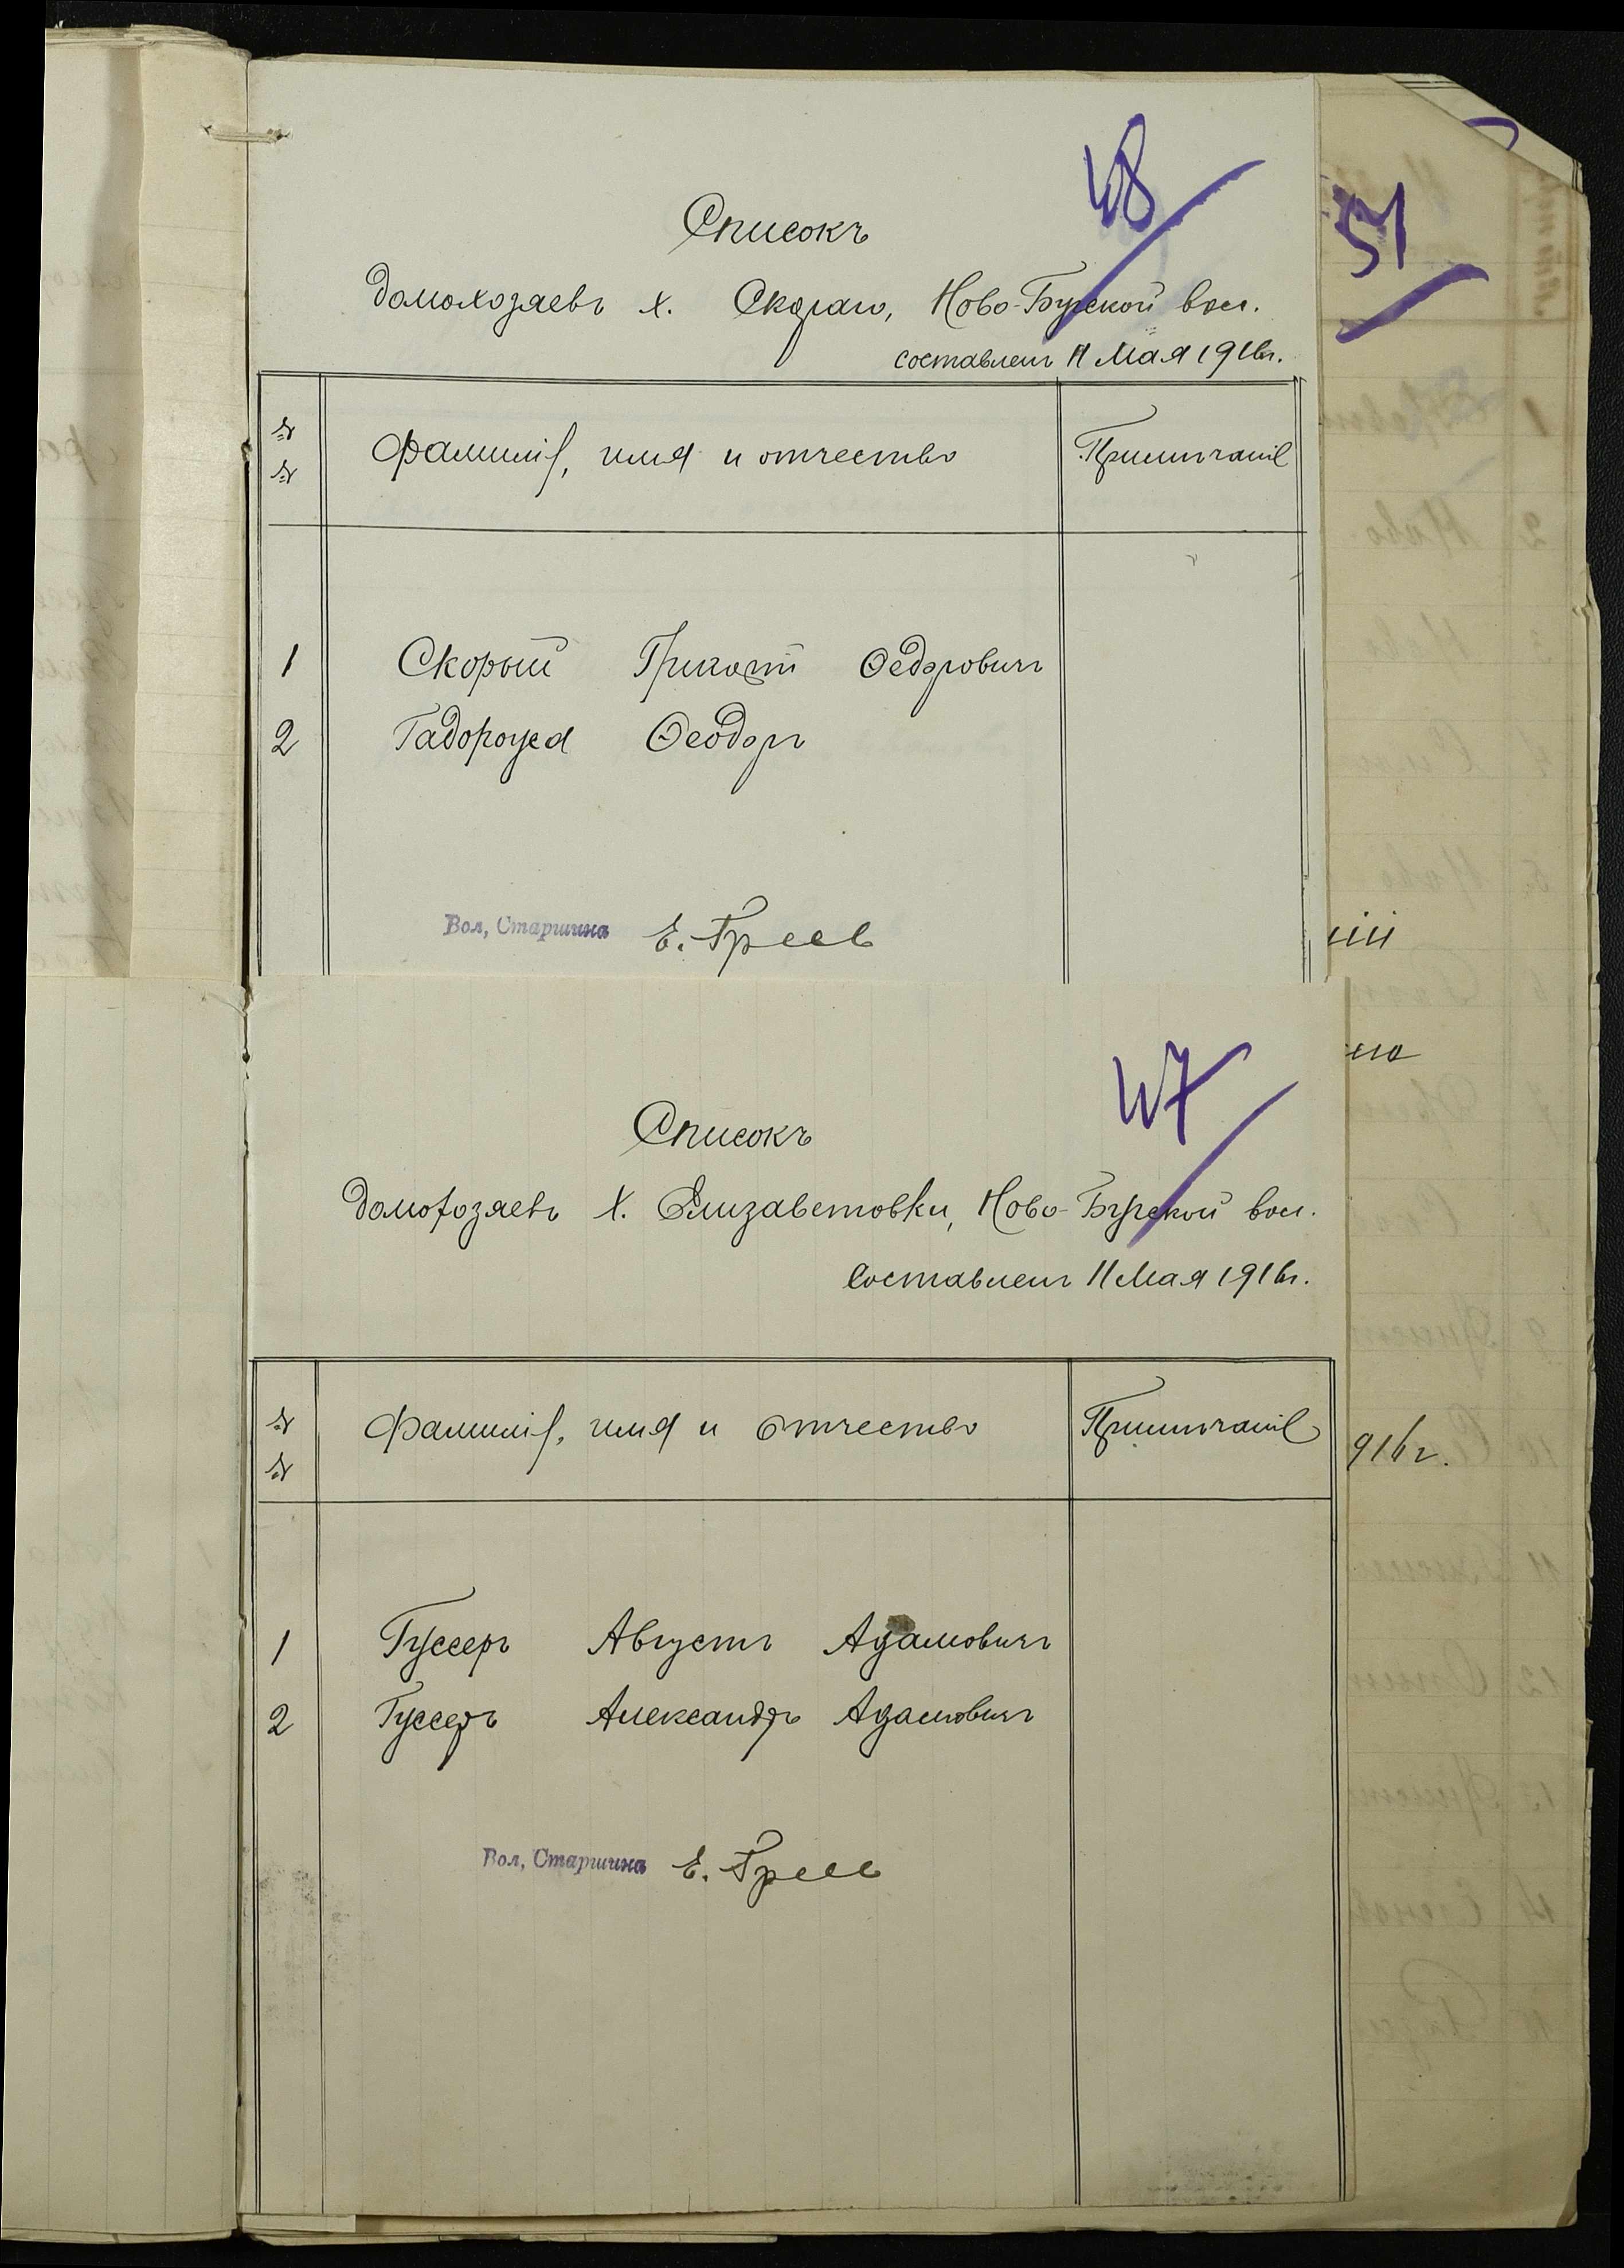 48
Списокъ
домохозяевъ х. Скораго, Ново-Бугской вол.
составленъ 11 Мая 1916 г.
№
№
Фамилія, имя и отчество
Примѣчаніе
1 Скорый Федоровичъ
2 Феодоръ
Вол, Старшина Е. Греев
51
47
Списокъ
домохозяевъ х. Елизаветовки, Ново-Бугской вол.
Составленъ 11 Мая 1916 г.
№
№
Фамилія, имя и отчество
Примѣчаніе
1 Гуссеръ Августъ Адамовичъ
2 Гуссеръ Александръ Адамовичъ
Вол, Старшина Е. Греев
916 г.